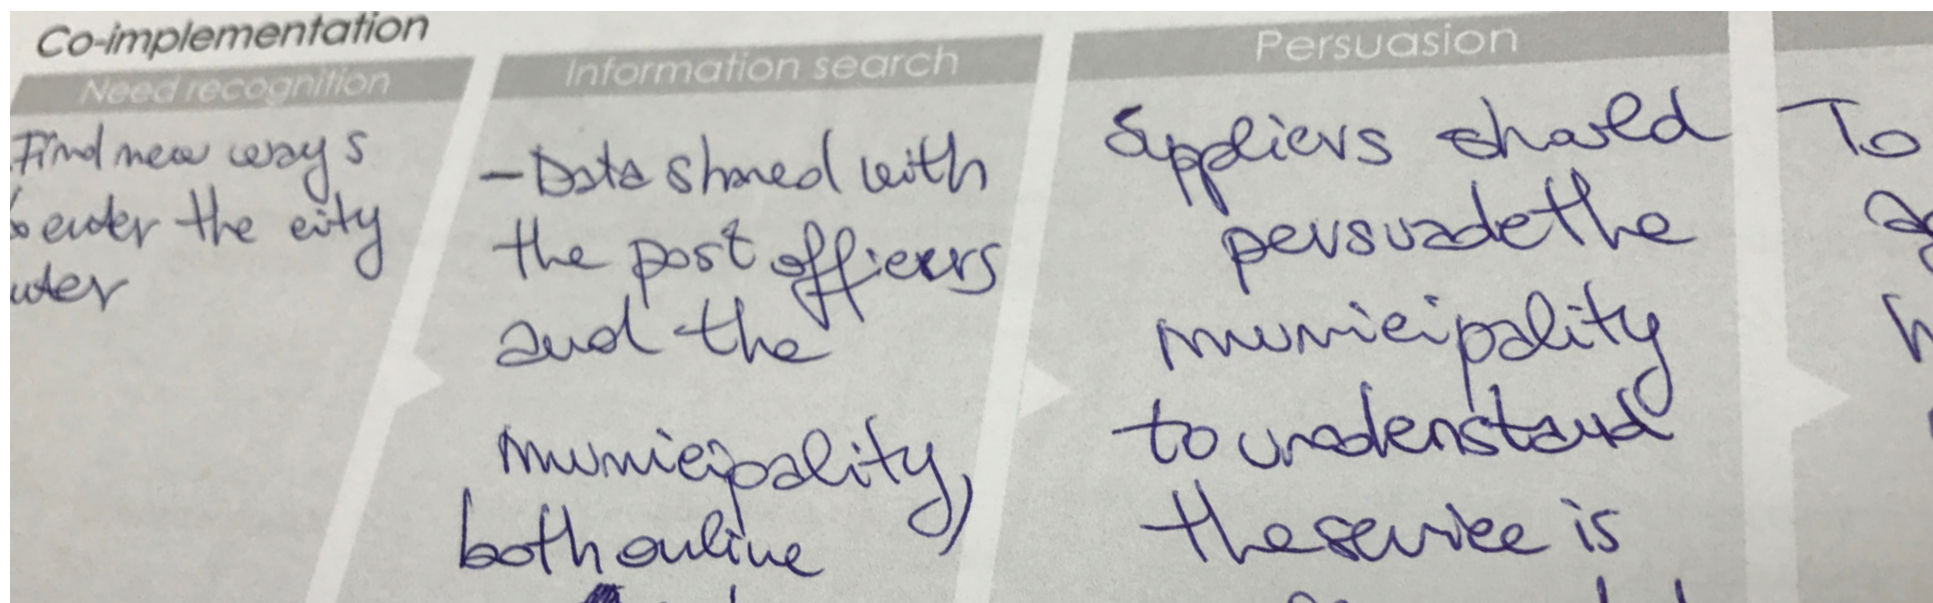 Co-implementation
Need recognition
Find new ways
to enter the city
Information search
- Data shared with
the post officers
and the
municipality,
both online
Persuasion
Suppliers should
persuade the
municipality
to understand
the service is
To